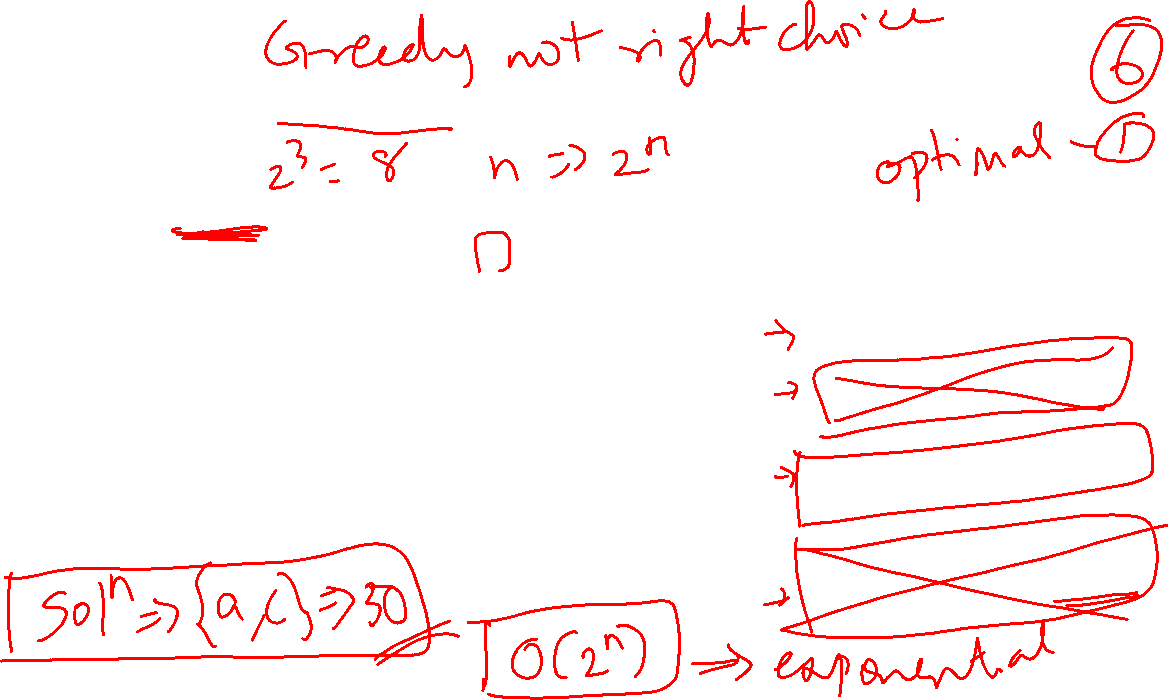 Greedy not right choice
6
2^3 = 8 n => 2^n
optimal -
Sol^n => {a, c} => 30
O(2^n) -> exponential